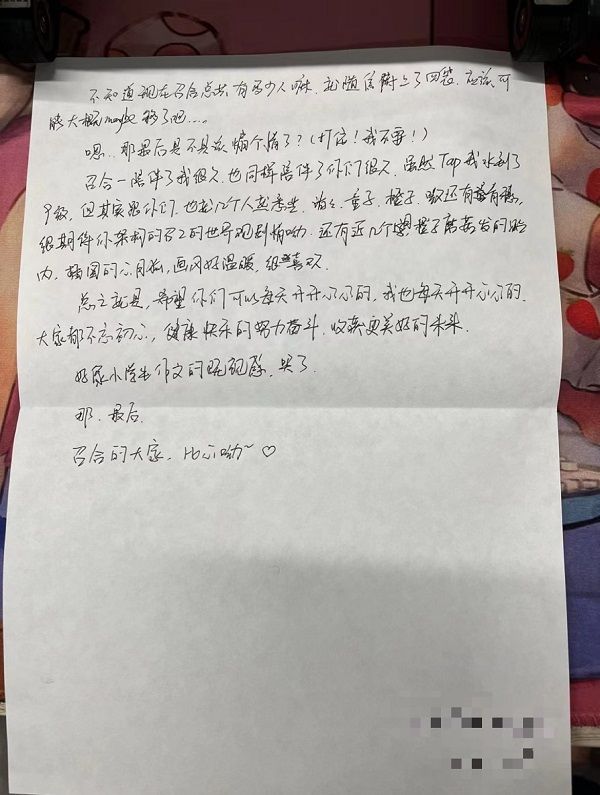 不知道现在召合总共有多少人啊，就随信附上了四袋，应该可
能大概maybe够了吧....
嗯..那最后是不是该煽个情了？(打住！我不要！)
召合一陪伴了我很久，也同样陪伴了你们很久，虽然Tap我水到了
但其实跟你们也就几个人熟悉些，童子，橙子，
很期待你架构的召2的世界观剧情呦，还有近几个橙子
内，画风好温暖，很喜欢
总之就是，希望你们可以每天开开心心的，我也每天开开心心的，
大家都不忘初心，健康快乐的努力奋斗，收获更美好的未来
好像小学生作文的既视感，哭了
那，最后
召合的大家，比心呦~♡